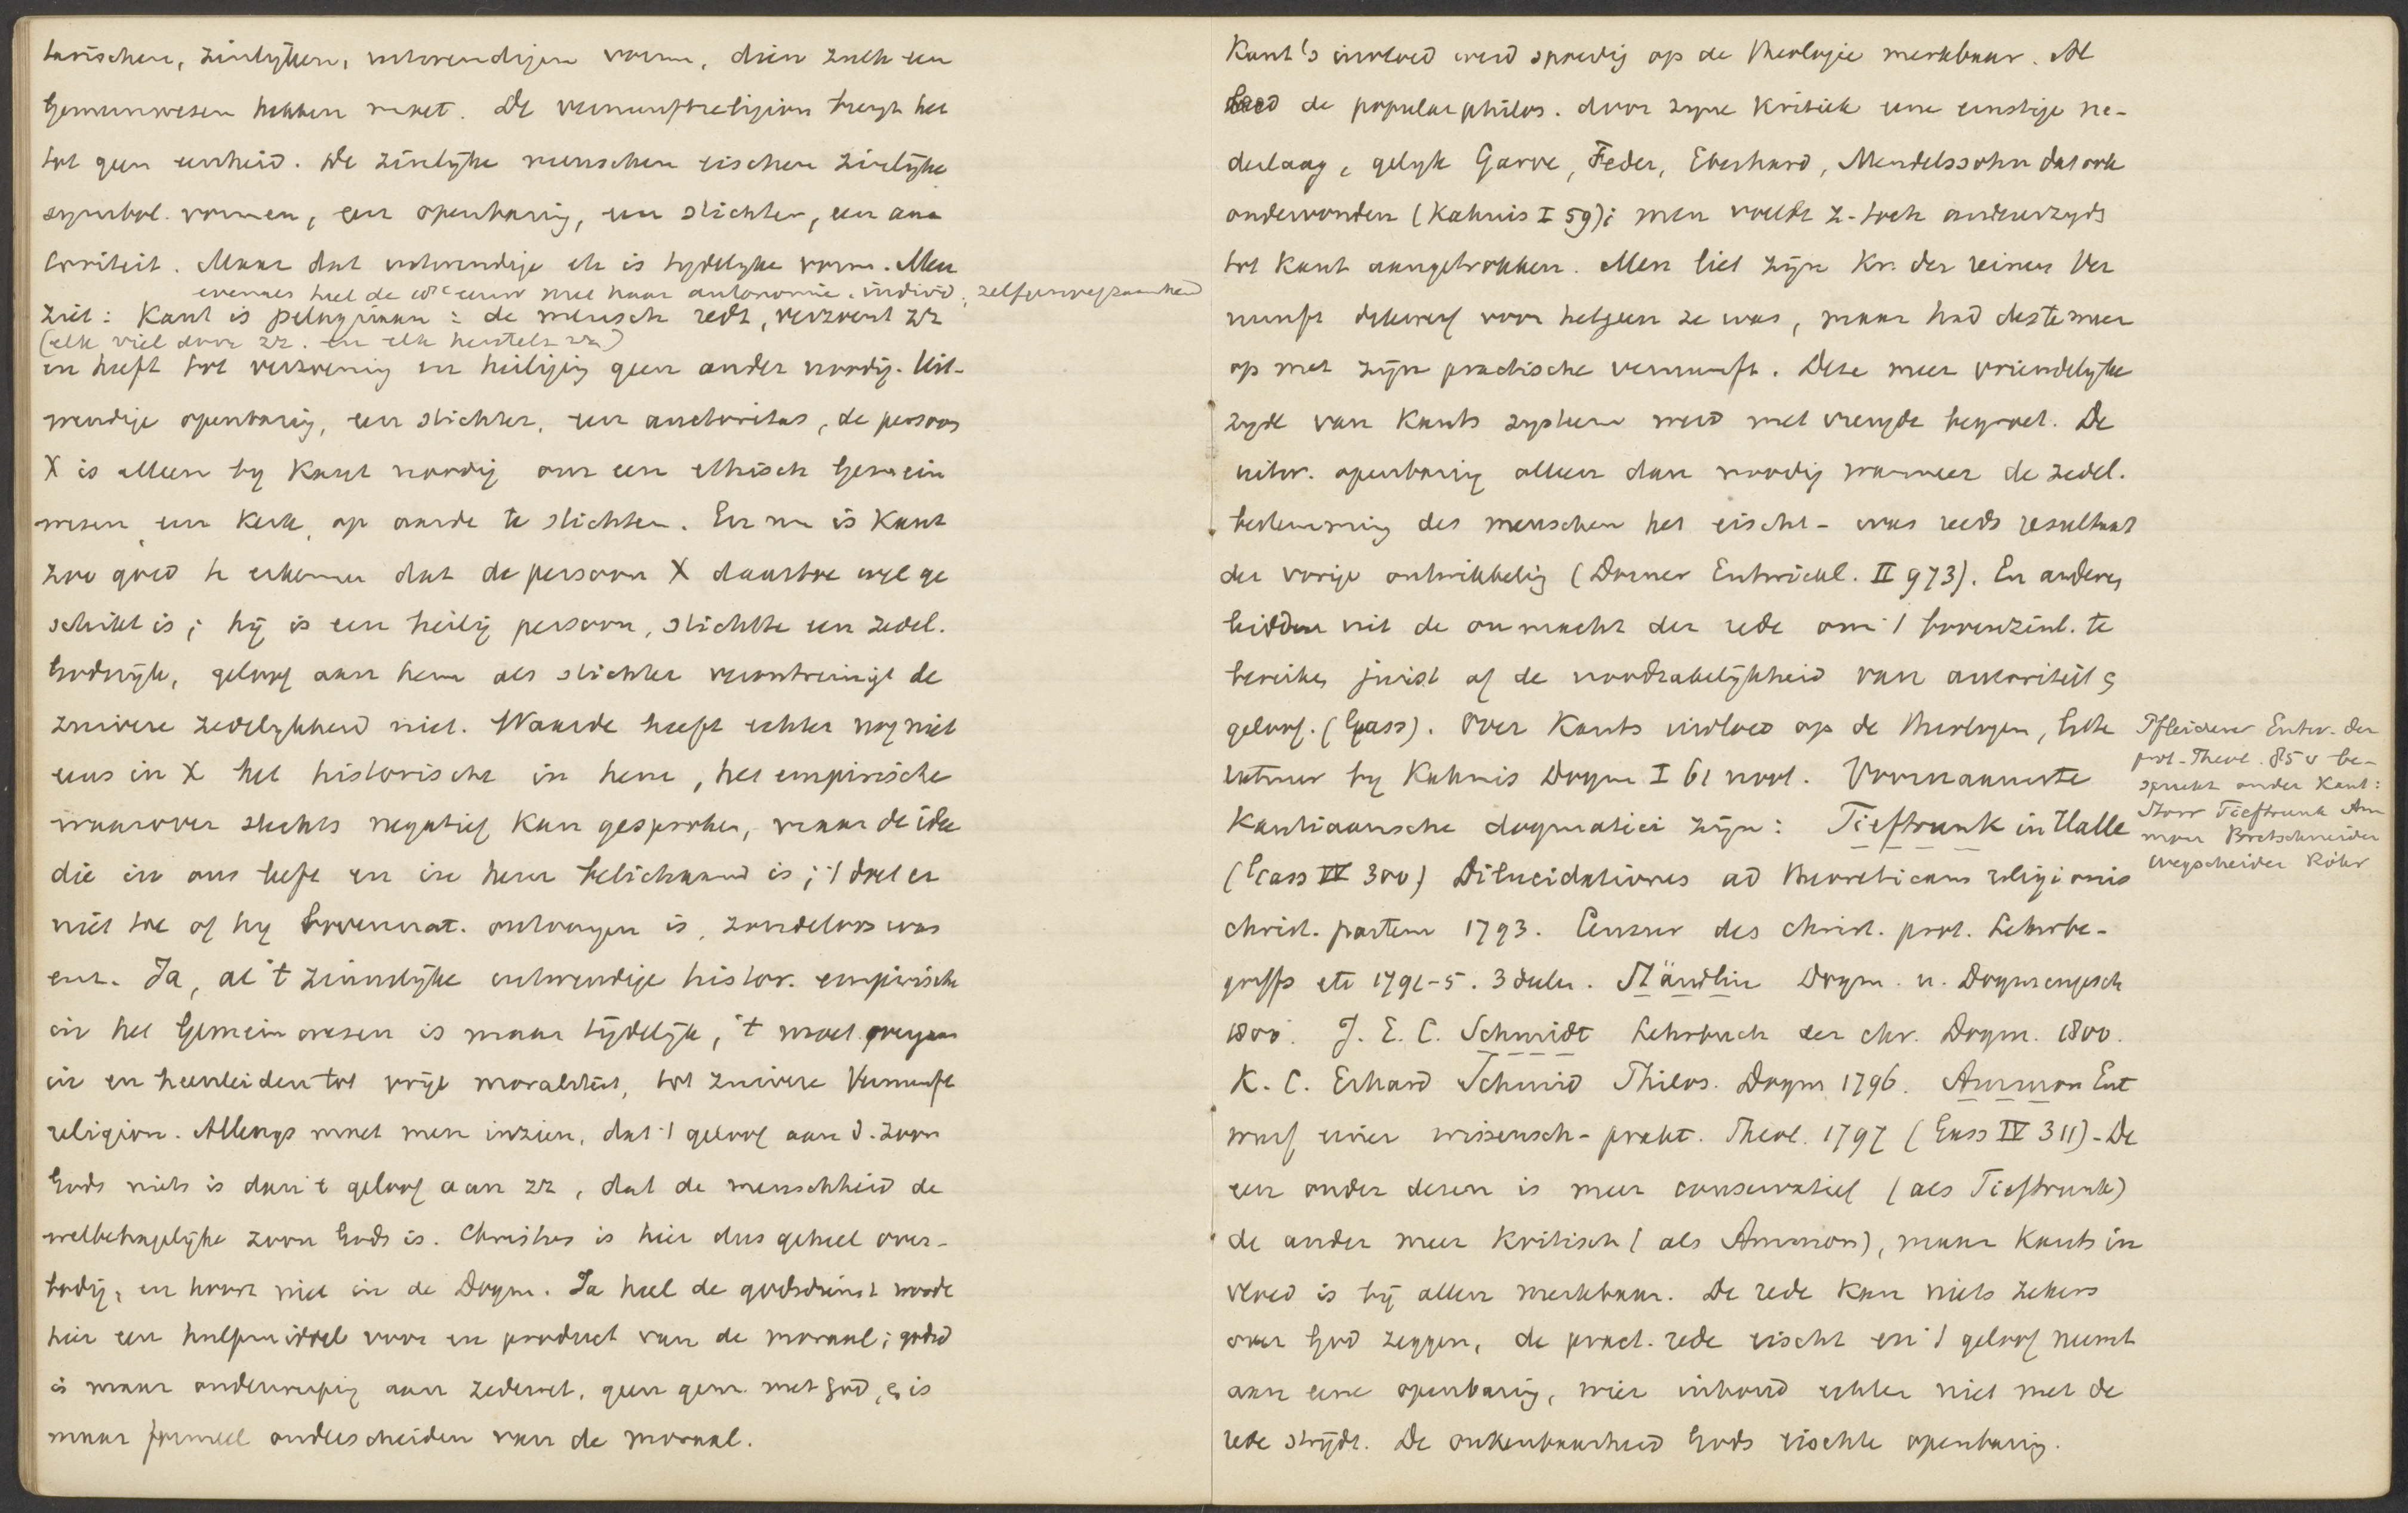 torischen, zinlijken, uitwendigen vorm, dien zulk een
Gemeinwesen hebben moet. De vernunftreligion brengt het
tot geen eenheid. De zinlijke menschen eischen zinlijke
symbol. vormen, een openbaring, een stichter, een auc
toriteit. Maar dat uitwendige etc is tijdelyke vorm. Men
evenals heel de 18e eeuw met haar autonomie, individ., zelfgenoegzaamheid
ziet: Kant is pelagiaan: de mensch redt, verzoent zz
(elk viel door zz. en elk herstelt zz)
en heeft tot verzoening en heiliging geen ander noodig. Uit-
wendige openbaring, een stichter, een auctoritas, de persoon
X is alleen by Kant noodig om een ethisch Gemein
wesen, een Kerk, op aarde te stichten. En nu is Kant
zoo goed te erkennen dat de persoon X daartoe wel ge
schikt is; hij is een heilig persoon, stichtte een zedel.
Godsrijk, geloof aan hem als stichter verontreinigt de
zuivere zedelykheid niet. Waarde heeft echter nog niet
eens in X het historische in hem, het empirische
waarover slechts negatief kan gesproken, maar de idee
die in ons leeft en in hem belichaamd is; 't doet er
niet toe of hy bovennat. ontvangen is, zondeloos was
enz. Ja, al 't zinnelijke uitwendige histor. empirische
in het Gemeinwesen is maar tijdelijk, 't moet overgaan
in en heenleiden tot vrije moraliteit, tot zuivere Vernunft
religion. Allengs moet men inzien, dat 't geloof aan d. zoon
Gods niets is dan 't geloof aan zz, dat de menschheid de
welbehagelijke zoon Gods is. Christus is hier dus geheel over-
bodig, en hoort niet in de Dogm. Ja heel de godsdienst wordt
hier een hulpmiddel voor en product van de moraal; godsd
is maar onderwerping aan zedewet, geen gem. met God, & is
maar formeel onderscheiden van de moraal.
Kant's invloed werd spoedig op de theologie merkbaar. Al
leed de popularphilos. door zyne Kritiek eene ernstige ne-
derlaag, gelyk Garve, Feder, Eberhard, Mendelssohn dat ook
ondervonden (Kahnis I 59); men voelde z. toch anderzyds
tot Kant aangetrokken. Men liet zijn Kr. der reinen Ver
nunft dikwerf voor hetgeen ze was, maar had des te meer
op met zijn practische vernunft. Deze meer vriendelyke
zyde van Kants systeem werd met vreugde begroet. De
uitw. openbaring alleen dan noodig wanneer de zedel.
bestemming des menschen het eischt - was reeds resultaat
der vorige ontwikkeling (Dorner Entwickl. II 973). En anderen
leidden uit de onmacht der rede om 't bovenzinl. te
bereiken juist af de noodzakelijkheid van autoriteit &
geloof. (Gass). Over Kants invloed op de theologen, litte
ratuur by Kahnis Dogm I 61 noot. Voornaamste
Kantiaansche dogmatici zijn: Tieftrunk in Halle
(Gass IV 300) Dilucidationes ad theoreticam religionis
christ. partem 1793. Censur des christ. prot. Lehrbe-
griffs etc 1791-5. 3 deelen. Stäudlin Dogm. u. Dogmengesch
1800. J. E. C. Schmidt Lehrbuch der chr. Dogm. 1800.
K. C. Erhard Schmid Philos. Dogm 1796. Ammon Ent
wurf einer wissensch-prakt. Theol. 1797 (Gass IV 311) - De
een onder dezen is meer conservatief (als Tieftrunk)
de ander meer kritisch (als Ammon), maar Kants in
vloed is bij allen merkbaar. De rede kan niets zekers
over God zeggen, de pract. rede eischt en 't geloof neemt
aan eene openbaring, wier inhoud echter niet met de
rede strijdt. De onkenbaarheid Gods eischte openbaring.
Pfleiderer Entw. der
prot. Theol. 85 v be-
spreekt onder Kant:
Storr Tieftrunk Am
mon Bretschneider
Wegscheider Röhr